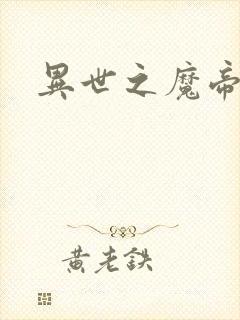 異世之魔帝
黄老鉄